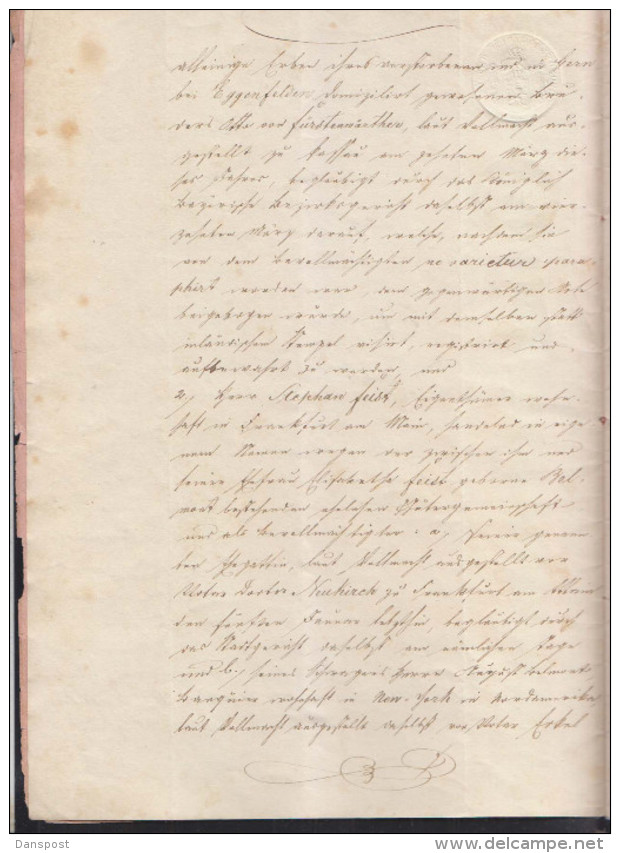 alleinige Erben ihres verstorbenen und in Gern
bei Eggenfelden domizilirt gewesenen Bru-
ders Otto von Fürstenwärther, laut Vollmacht aus-
gestellt zu Passau am zehnten März die-
ses Jahres, beglaubigt durch das Königlich
Bayerische Bezirksgericht daselbst am vier-
zehnten März darauf, welche, nachdem sie
von dem Bevollmächtigten ne varietur para-
phirt worden war, dem gegenwärtigen Akte
beigebogen wurde, um mit demselben statt
inländischen Stempel visirt, registrirt und
aufbewahrt zu werden, und
2, Herr Stephan Feist, Eigenthümer wohn-
haft in Frankfurt am Main, handelnd in eige-
nem Namen wegen der zwischen ihm und
seiner Ehefrau Elisabetha Feist geborne Bel-
mont bestehenden ehelichen Gütergemeinschaft
und als Bevollmächtigter: a, seiner genann-
ten Ehegattin, laut Vollmacht ausgestellt vor
Notar Doctor Neukirch zu Frankfurt am
den fünften Januar letzthin, beglaubigt durch
das Stadtgericht daselbst am nämlichen Tage
und b, seines Schwagers Herrn August Belmont,
Banquier wohnhaft in New-York in Nordamerika
laut Vollmacht ausgestellt daselbst vor Notar Erkel
Danspost
www.delcampe.net